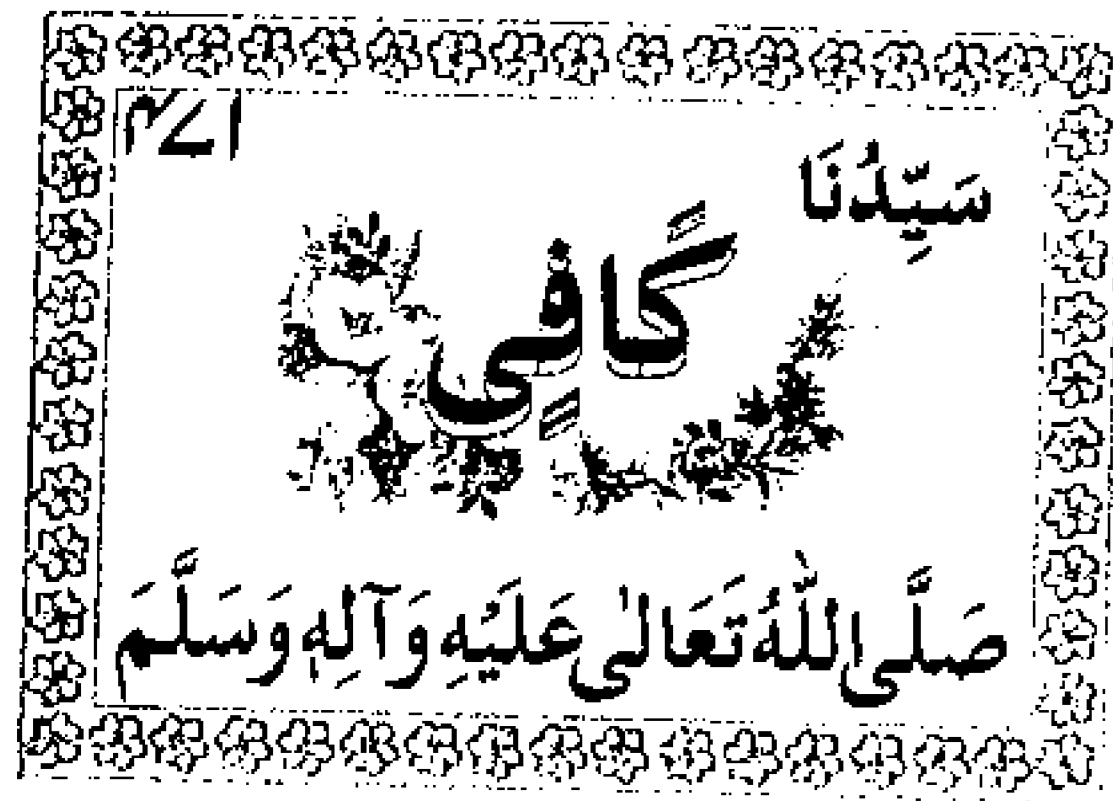 سَيِّدُنَا
كَافِي
صَلَّى اللّٰهُ تَعَالٰى عَلَيْهِ وَآلِهٖ وَسَلَّمَ